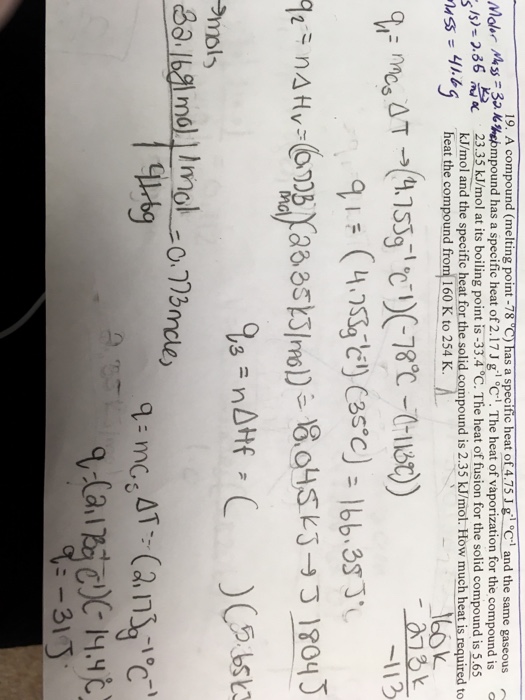 19. A compound (melting point -78 °C) has a specific heat of 4.75 J g⁻¹ °C⁻¹ and the same gaseous
compound has a specific heat of 2.17 J g⁻¹ °C⁻¹. The heat of vaporization for the compound is
23.35 kJ/mol at its boiling point is -33.4 °C. The heat of fusion for the solid compound is 5.65
kJ/mol and the specific heat for the solid compound is 2.35 kJ/mol. How much heat is required to
heat the compound from 160 K to 254 K.
Molar Mass = 32.16
(s) = 2.35
mass = 41.6g
160K
- 273K
-113
q₁ = mcₛ ΔT → (4.75Jg⁻¹°C⁻¹)(-78°C - (-113°C))
q₁ = (4.75Jg⁻¹C⁻¹)(35°C) = 166.35J
q₂ = nΔHv = (0.773 mol)(23.35kJ/mol) = 18.045kJ → J 1804J
q₃ = nΔHf = ( )(5.65k
→mols
32.16g/mol | 1mol = 0.773moles
41.6g
q = mcₛ ΔT = (2.17Jg⁻¹°C⁻¹
q = (2.17Jg⁻¹C⁻¹)(-14.4°C)
q = -31J